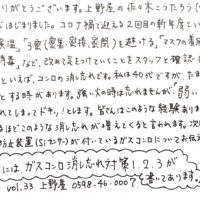 りがとうございます。上野屋の佐々木こうたろう(
がはじまりました。コロナ禍で迎える2回目の新年度という
保温」「3密(密集・密接・密閉)を避ける」「マスクの着用
消毒」など、改めて気をつけていくことをスタッフと確認し
といえば、コンロの消し忘れです。私は40代ですが、たま
とする時があります。強い火の時は忘れませんが、弱い
れてしまってドキッとします。皆さんはこのような経験ありま
るほどこのような消し忘れが増えてくると言われます。次に
防止装置(Siセンサー)が付いているガスコンロについてお伝え
には、ガスコンロ消し忘れ対策1.2.3が
vol.33 上野屋 0598-46-000 て書いてあります。